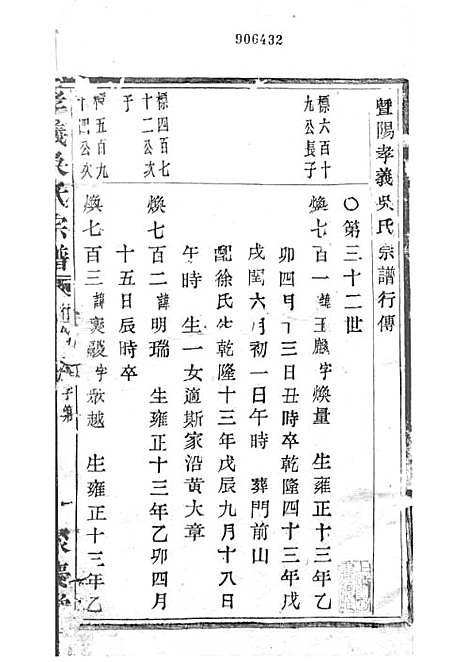 906432
暨陽孝義吳氏宗譜行傳
〇第三十二世
標六百十九公長子
煥七百一 諱玉麟字煥量 生雍正十三年乙
卯四月十三日丑時卒乾隆四十三年戊
戌閏六月初一日午時 葬門前山
配徐氏生乾隆十三年戊辰九月十八日
午時 生一女適斯家沿黃大章
標四百七十二公次子
煥七百二 諱明瑞 生雍正十三年乙卯四月
十五日辰時卒
標五百九十四公次
煥七百三 諱 字 越 生雍正十三年乙
孝義吳氏宗譜